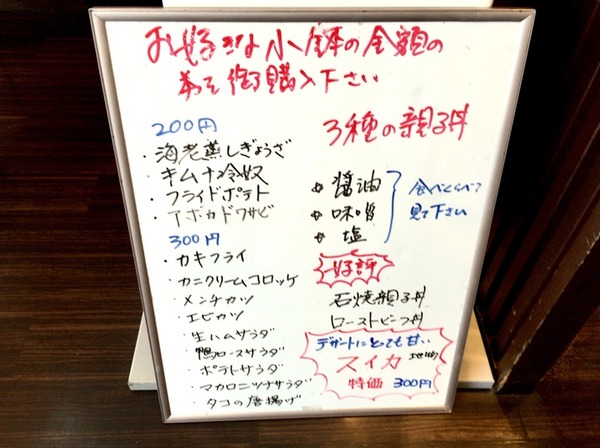 お好きな小鉢の金額の
券を御購入下さい
200円
・海老蒸しぎょうざ
・キムチ冷奴
・フライドポテト
・アボカドワサビ
300円
・カキフライ
・カニクリームコロッケ
・メンチカツ
・エビカツ
・生ハムサラダ
・鴨ロースサラダ
・ポテトサラダ
・マカロニツナサラダ
・タコの唐揚げ
3種の親子丼
醤油
味噌
塩
食べくらべて
見て下さい
好評
石焼親子丼
ローストビーフ丼
デザートにとっても甘い
スイカ
特価 300円